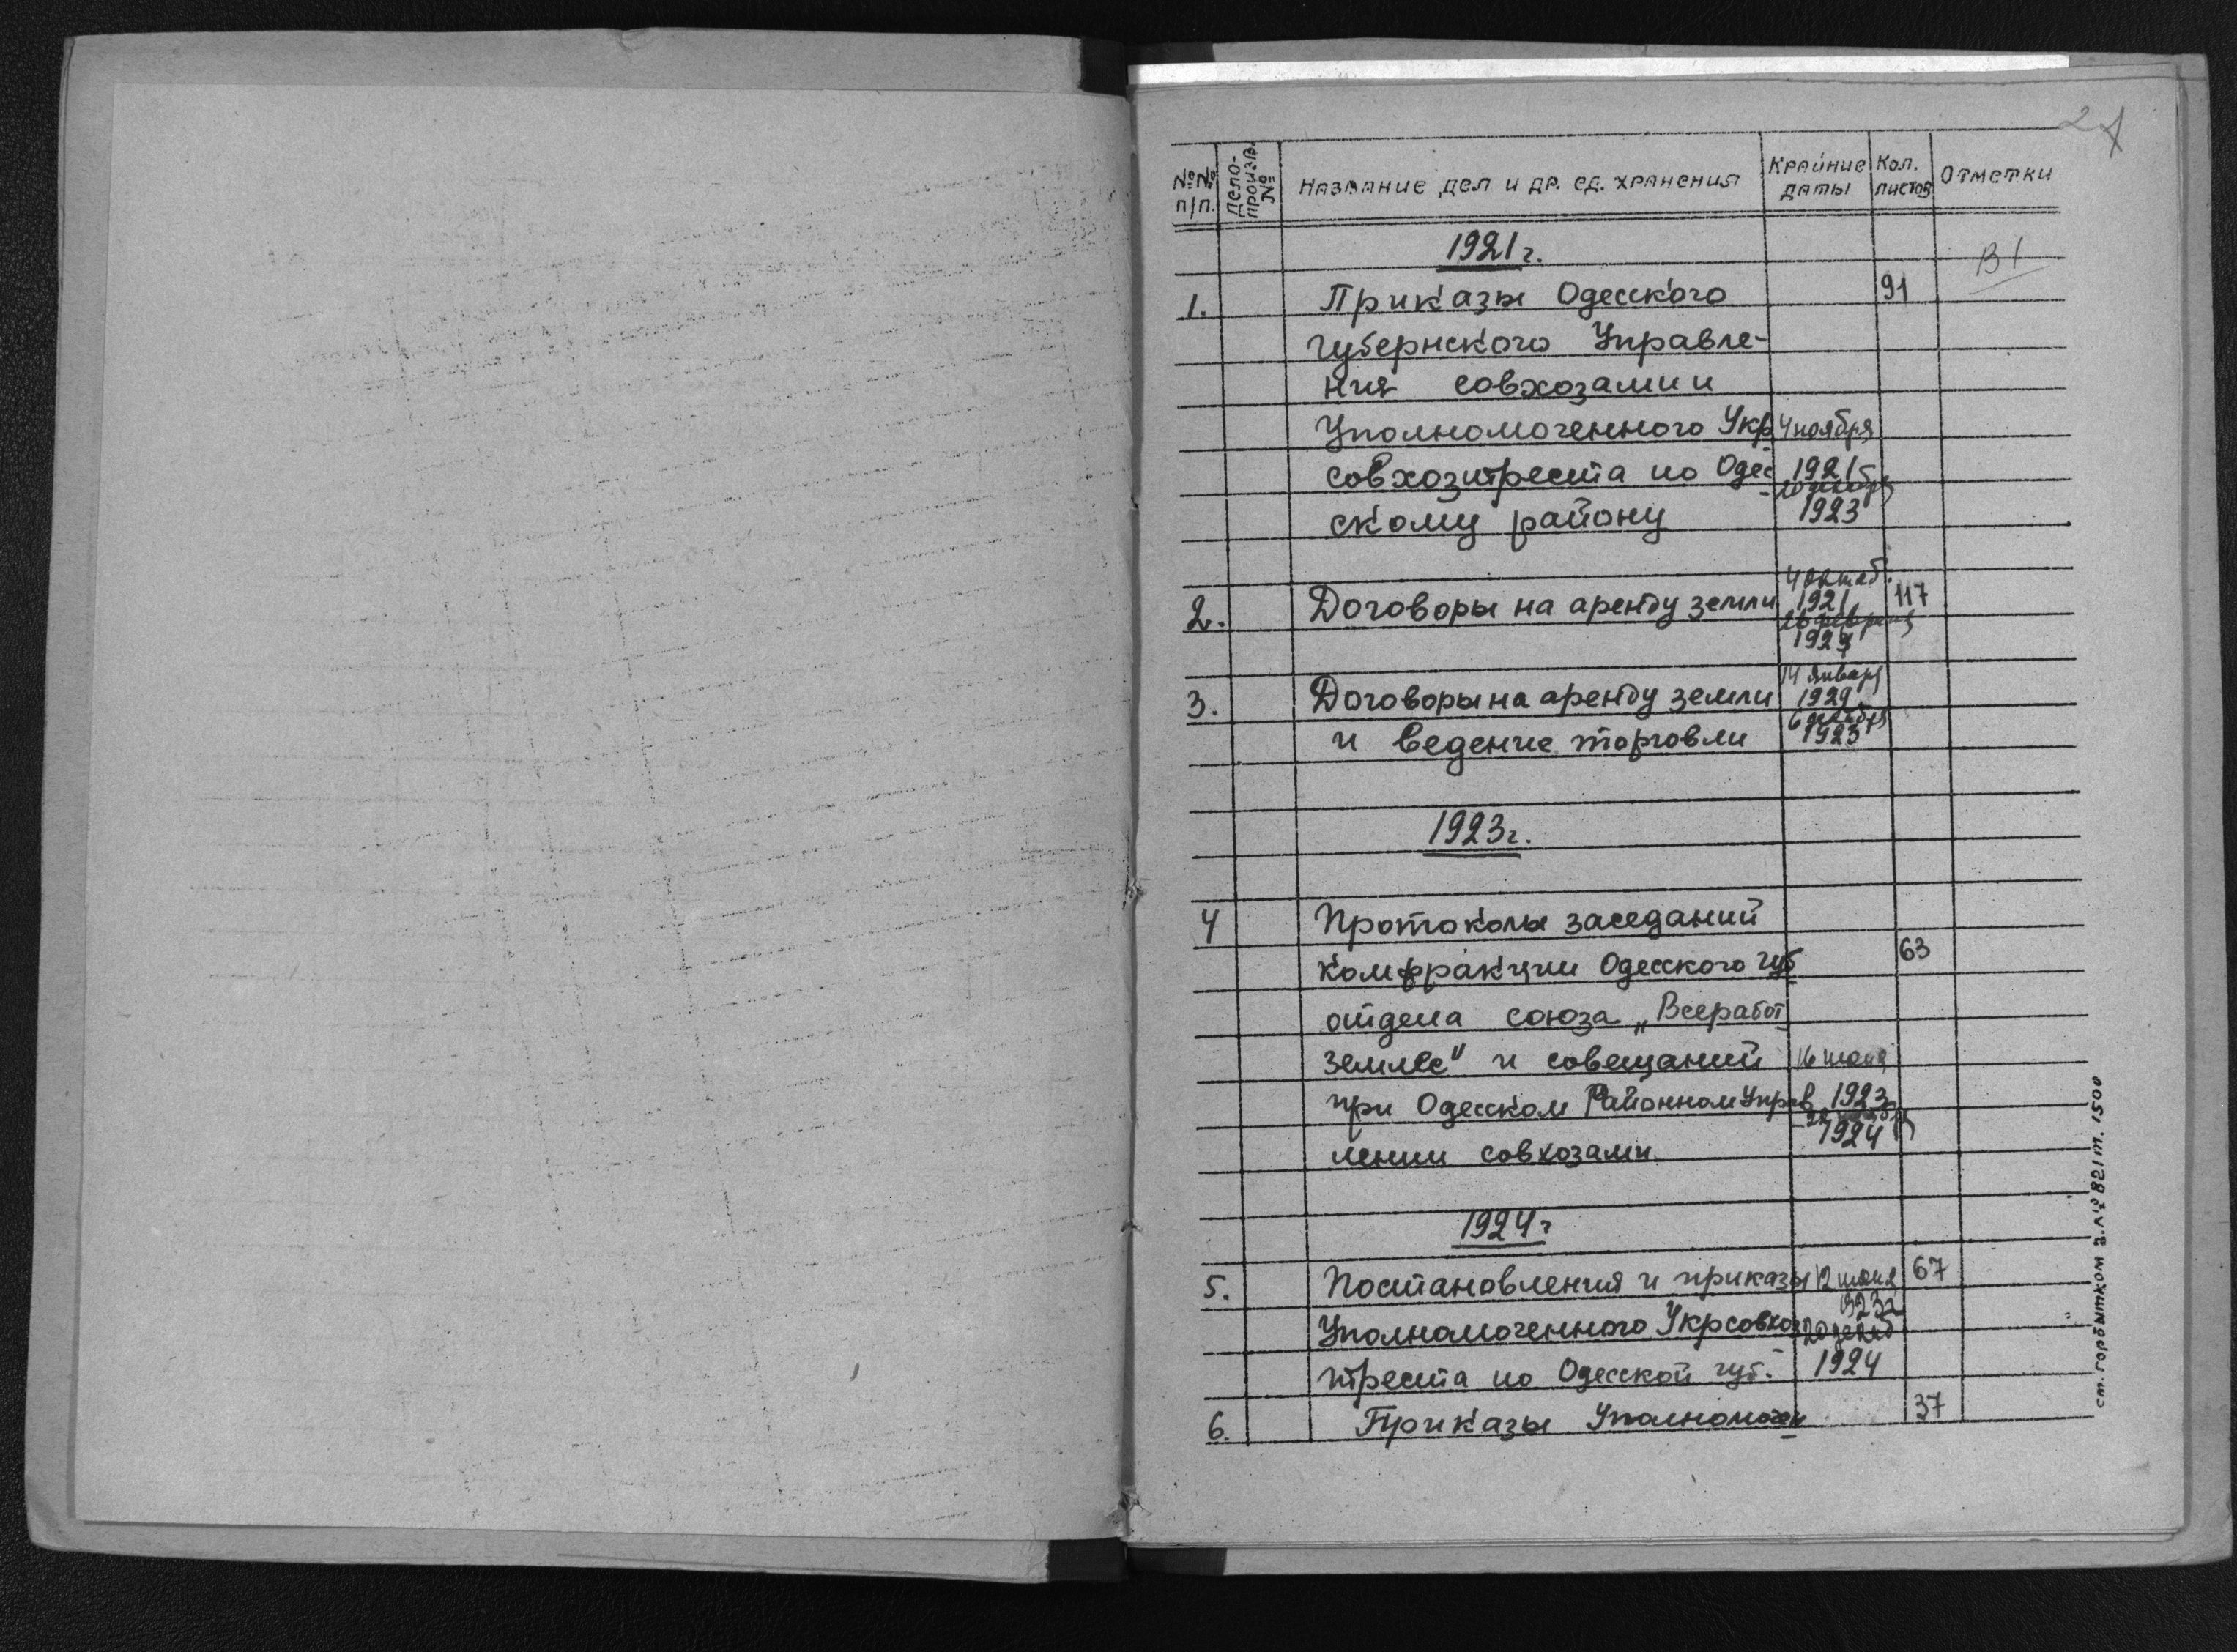 №№ п/п. Дело-произв. № Название дел и др. ед. хранения Крайние даты Кол. листов Отметки
1921 г.
В 1
1. Приказы Одесского 91
губернского Управле-
ния совхозами и
Уполномоченного Укр 4 ноября
совхозтреста по Одес 1921
скому району 1923
2. Договоры на аренду земли 1921 117
3. Договоры на аренду земли 14 января
и ведение торговли 6 декабря 1923
1923 г.
4 Протоколы заседаний
комфракции Одесского губ 63
отдела союза „Всеработ
землес" и совещаний 16 июля
при Одесском Районном Управ 1923
лении совхозами. 1924
1924 г
5. Постановления и приказы 12 67
Уполномоченного Укрсовхоз 20 декаб
треста по Одесской губ. 1924
6. Приказы Уполномочен 37
ст. горбытком з. № 821 т. 1500